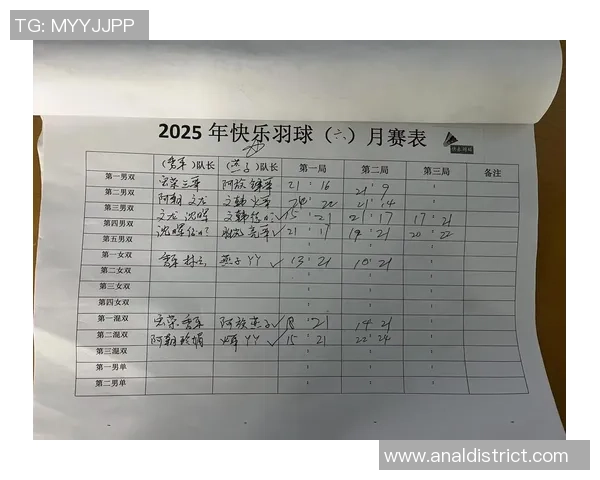 TG: MYYJJPP
2025 年快乐羽球（六）月赛表
快乐羽球
（秀军）队长 （燕子）队长 第一局 第二局 第三局 备注
第一男双 宏荣 三军 阿族 锋军 21：16 21：9 ：
第二男双 阿朝 文龙 文韩 火军 22 21：14 ：
第三男双 文龙 沈晖 文韩 15：21 21：17 17：21
第四男双 沈晖 亮军 21：17 19：21 20：22
第五男双 ： ： ：
第一女双 秀军 燕子 YY 13：21 10：21 ：
第二女双 ： ： ：
第三女双 ： ： ：
第四女双 ： ： ：
第一混双 宏荣 秀军 阿族 燕子 18：21 19：21 ：
第二混双 阿朝 YY 15：21 22：24 ：
第三混双 ： ： ：
第一男单 ： ： ：
第二男单 ： ： ：
www.analdistrict.com